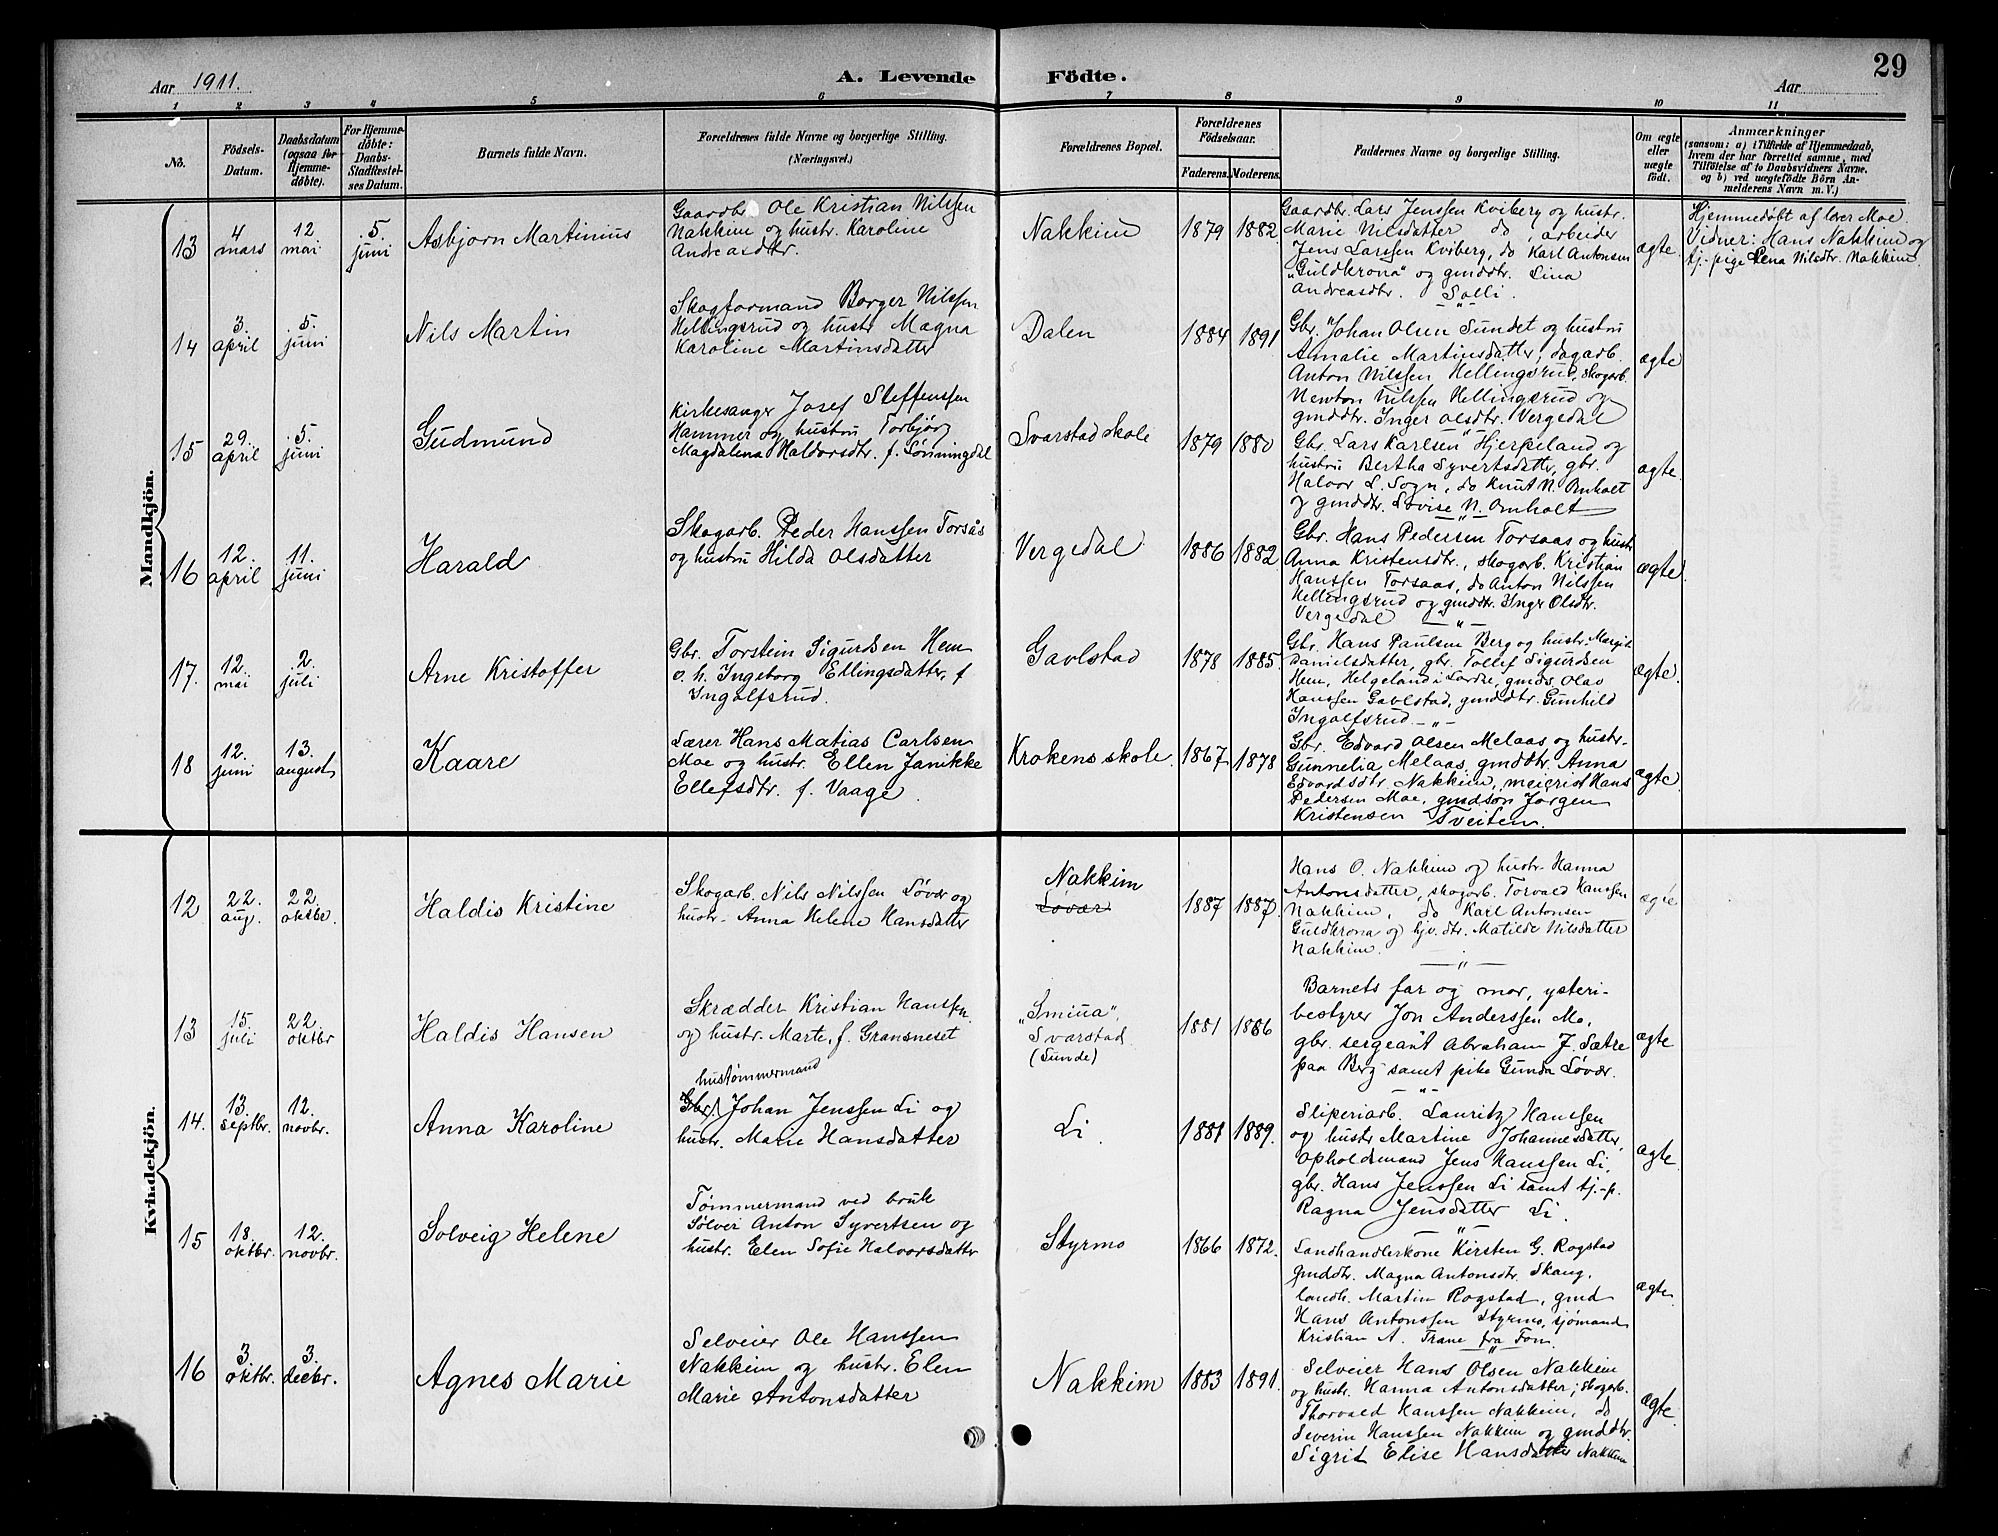 29
Aar 1911.
A. Levende Födte.
Aar
1 2 3 4 5 6 7 8 9 10 11
No.
Födsels-
Datum.
Daabsdatum
(ogsaa for
Hjemme-
døbte).
For Hjemme-
døbte:
Daabs-
Stadfæstel-
ses Datum.
Barnets fulde Navn.
Forældrenes fulde Navne og borgerlige Stilling.
(Næringsvei.)
Forældrenes Bopæl.
Forældrenes
Födselsaar.
Faderens. Moderens.
Faddernes Navne og borgerlige Stilling.
Om ægte
eller
uægte
født.
Anmærkninger
(saasom: a) i Tilfælde af Hjemmedaab,
hvem der har forrettet samme, med
Tilföielse af to Daabsvidners Navne.
og b) ved uægtefödte Börn An-
melderens Navn m. V.)
Mandkjön.
13
4
mars
12
mai
5
juni
Asbjørn Martinius
Gaardbr. Ole Kristian Nilssen
Nakkim og hustr. Karoline
Andreasdtr.
Nakkim
1879 1882
Gaardbr. Lars Jenssen Kviberg og hustr.
Marie Nilsdatter do, arbeider
Jens Larssen Kviberg, do Karl Antonsen
"Guldkrona" og gmddtr. Lina
Andreasdtr. Solli.
ægte
Hjemmedøbt af lærer Moe.
Vidner: Hans Nakkim og
tj.-pige Lena Nilsdtr. Nakkim.
14
3.
april
5.
juni
Nils Martin
Skogformand Borger Nilssen
Hellingsrud og hustr. Magna
Karoline Martinsdatter
Dalen
1884 1891
Gbr. Johan Olsen Sundet og hustru
Amalie Martinsdatter, dagarb.
Anton Nilssen Hellingsrud, skogarb.
Newton Nilssen Hellingsrud og
gmddtr. Inger Olsdtr. Vergedal
ægte
15
29.
april
5.
juni
Gudmund
Kirkesanger Josef Steffenssen
Hammer og hustru Torbjørg
Magdalena Haldorsdtr. f. Lønningdal
Svarstad skole
1879 1880
Gbr. Lars Karlsen Hjerpeland og
hustru Bertha Syvertsdatter, gbr.
Halvor L. Sogn, do Knut N. Omholt
og gmddtr. Lovise N. Omholt
ægte.
16
12.
april
11.
juni
Harald
Skogarb. Peder Hanssen Torsås
og hustru Hilda Olsdatter
Vergedal
1886 1882
Gbr. Hans Pedersen Torsaas og hustr.
Anna Kristensdtr., skogarb. Kristian
Hanssen Torsaas, do Anton Nilssen
Hellingsrud og gmddtr. Inger Olsdtr.
Vergedal
ægte
17.
12.
mai
2.
juli
Arne Kristoffer
Gbr. Torstein Sigurdsen Hem
o. h. Ingeborg Ellingsdatter, f.
Ingolfsrud.
Gavlstad
1878 1885
Gbr. Hans Paulsen Berg og hustr. Margit
Danielsdatter, gbr. Tollef Sigurdsen
Hem, Helgeland i Lardal, gmds. Olav
Hanssen Gavlstad, gmddtr. Gunhild
Ingolfsrud.
ægte.
18
12.
juni
13.
august
Kaare
Lærer Hans Matias Carlsen
Moe og hustr. Ellen Janikke
Ellefsdtr. f. Vaage.
Krokens skole.
1867 1878
Gbr. Edvard Olsen Melaas og hustr.
Gunnelia Melaas, gmddtr. Anna
Edvardsdtr. Nakkim, meierist Hans
Pedersen Moe, gmdsøn Jørgen
Kristensen Tveiten.
ægte.
Kvindekjön.
12
22.
aug.
22.
oktbr.
Haldis Kristine
Skogarb. Nils Nilssen Løvær og
hustr. Anna Helene Hansdatter
Nakkim
Løvær
1887 1887.
Hans O. Nakkim og hustr. Hanna
Antonsdatter, skogarb. Torvald Hanssen
Nakkim, do Karl Antonsen
Guldkrona og hjv. dtr. Matilde Nilsdatter
Nakkim.
ægte
13
15.
juli
22.
oktbr
Haldis Hansen
Skrædder Kristian Hanssen
og hustr. Marte, f. Gransneset
"Smiua",
Svarstad
(Sunde)
1881 1886
Barnets far og mor, ysteri-
bestyrer Jon Anderssen Mo,
gbr. sergeant Abraham J. Sætre
paa Berg samt pike Gunda Løvær.
ægte
14.
13.
septbr.
12.
novbr.
Anna Karoline
hustømmermand
Gbr. Johan Jenssen Li og
hustr. Marie Hansdatter
Li.
1881 1889.
Sliperiarb. Lauritz Hanssen
og hustr Martine Johannesdatter,
opholdsmand Jens Hanssen Li,
gbr. Hans Jenssen Li samt tj.-p.
Ragna Jensdatter Li.
ægte.
15
18.
oktbr.
12.
novbr.
Solveig Helene
Tømmermand ved bruk
Sølver Anton Syvertsen og
hustr. Elen Sofie Halvorsdatter
Styrmo
1866 1872.
Landhandlerkone Kirsten G. Rogstad
gmddtr. Magna Antonsdtr. Skaug,
landh. Martin Rogstad, gmd
Hans Antonssen Styrmo, sjømand
Kristian A. Trane fra Fon
ægte
16
3.
oktbr.
3.
decbr.
Agnes Marie
Selveier Ole Hanssen
Nakkim og hustr. Elen
Marie Antonsdatter
Nakkim
1883 1891.
Selveier Hans Olsen Nakkim
og hustr. Hanna Antonsdatter, skogarb.
Thorvald Hanssen Nakkim, do
Severin Hanssen Nakkim og gmddtr.
Sigrid Elise Hansdatter Nakkim
ægte.